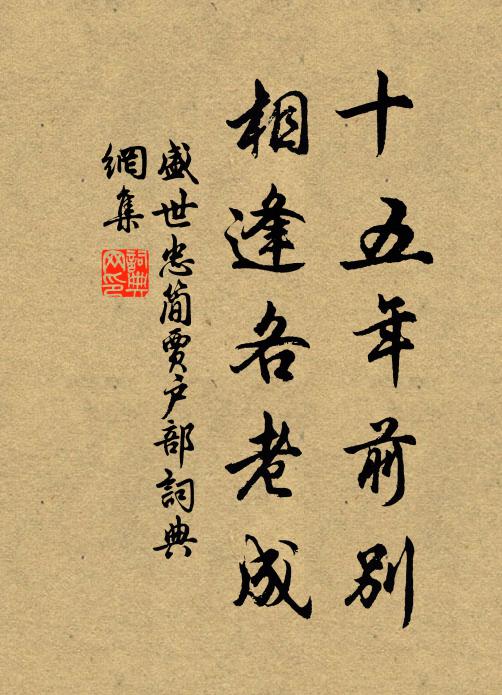 十五年前别
相逢各老成
盛世忠簡賈户部詞典
網集
詞典网印